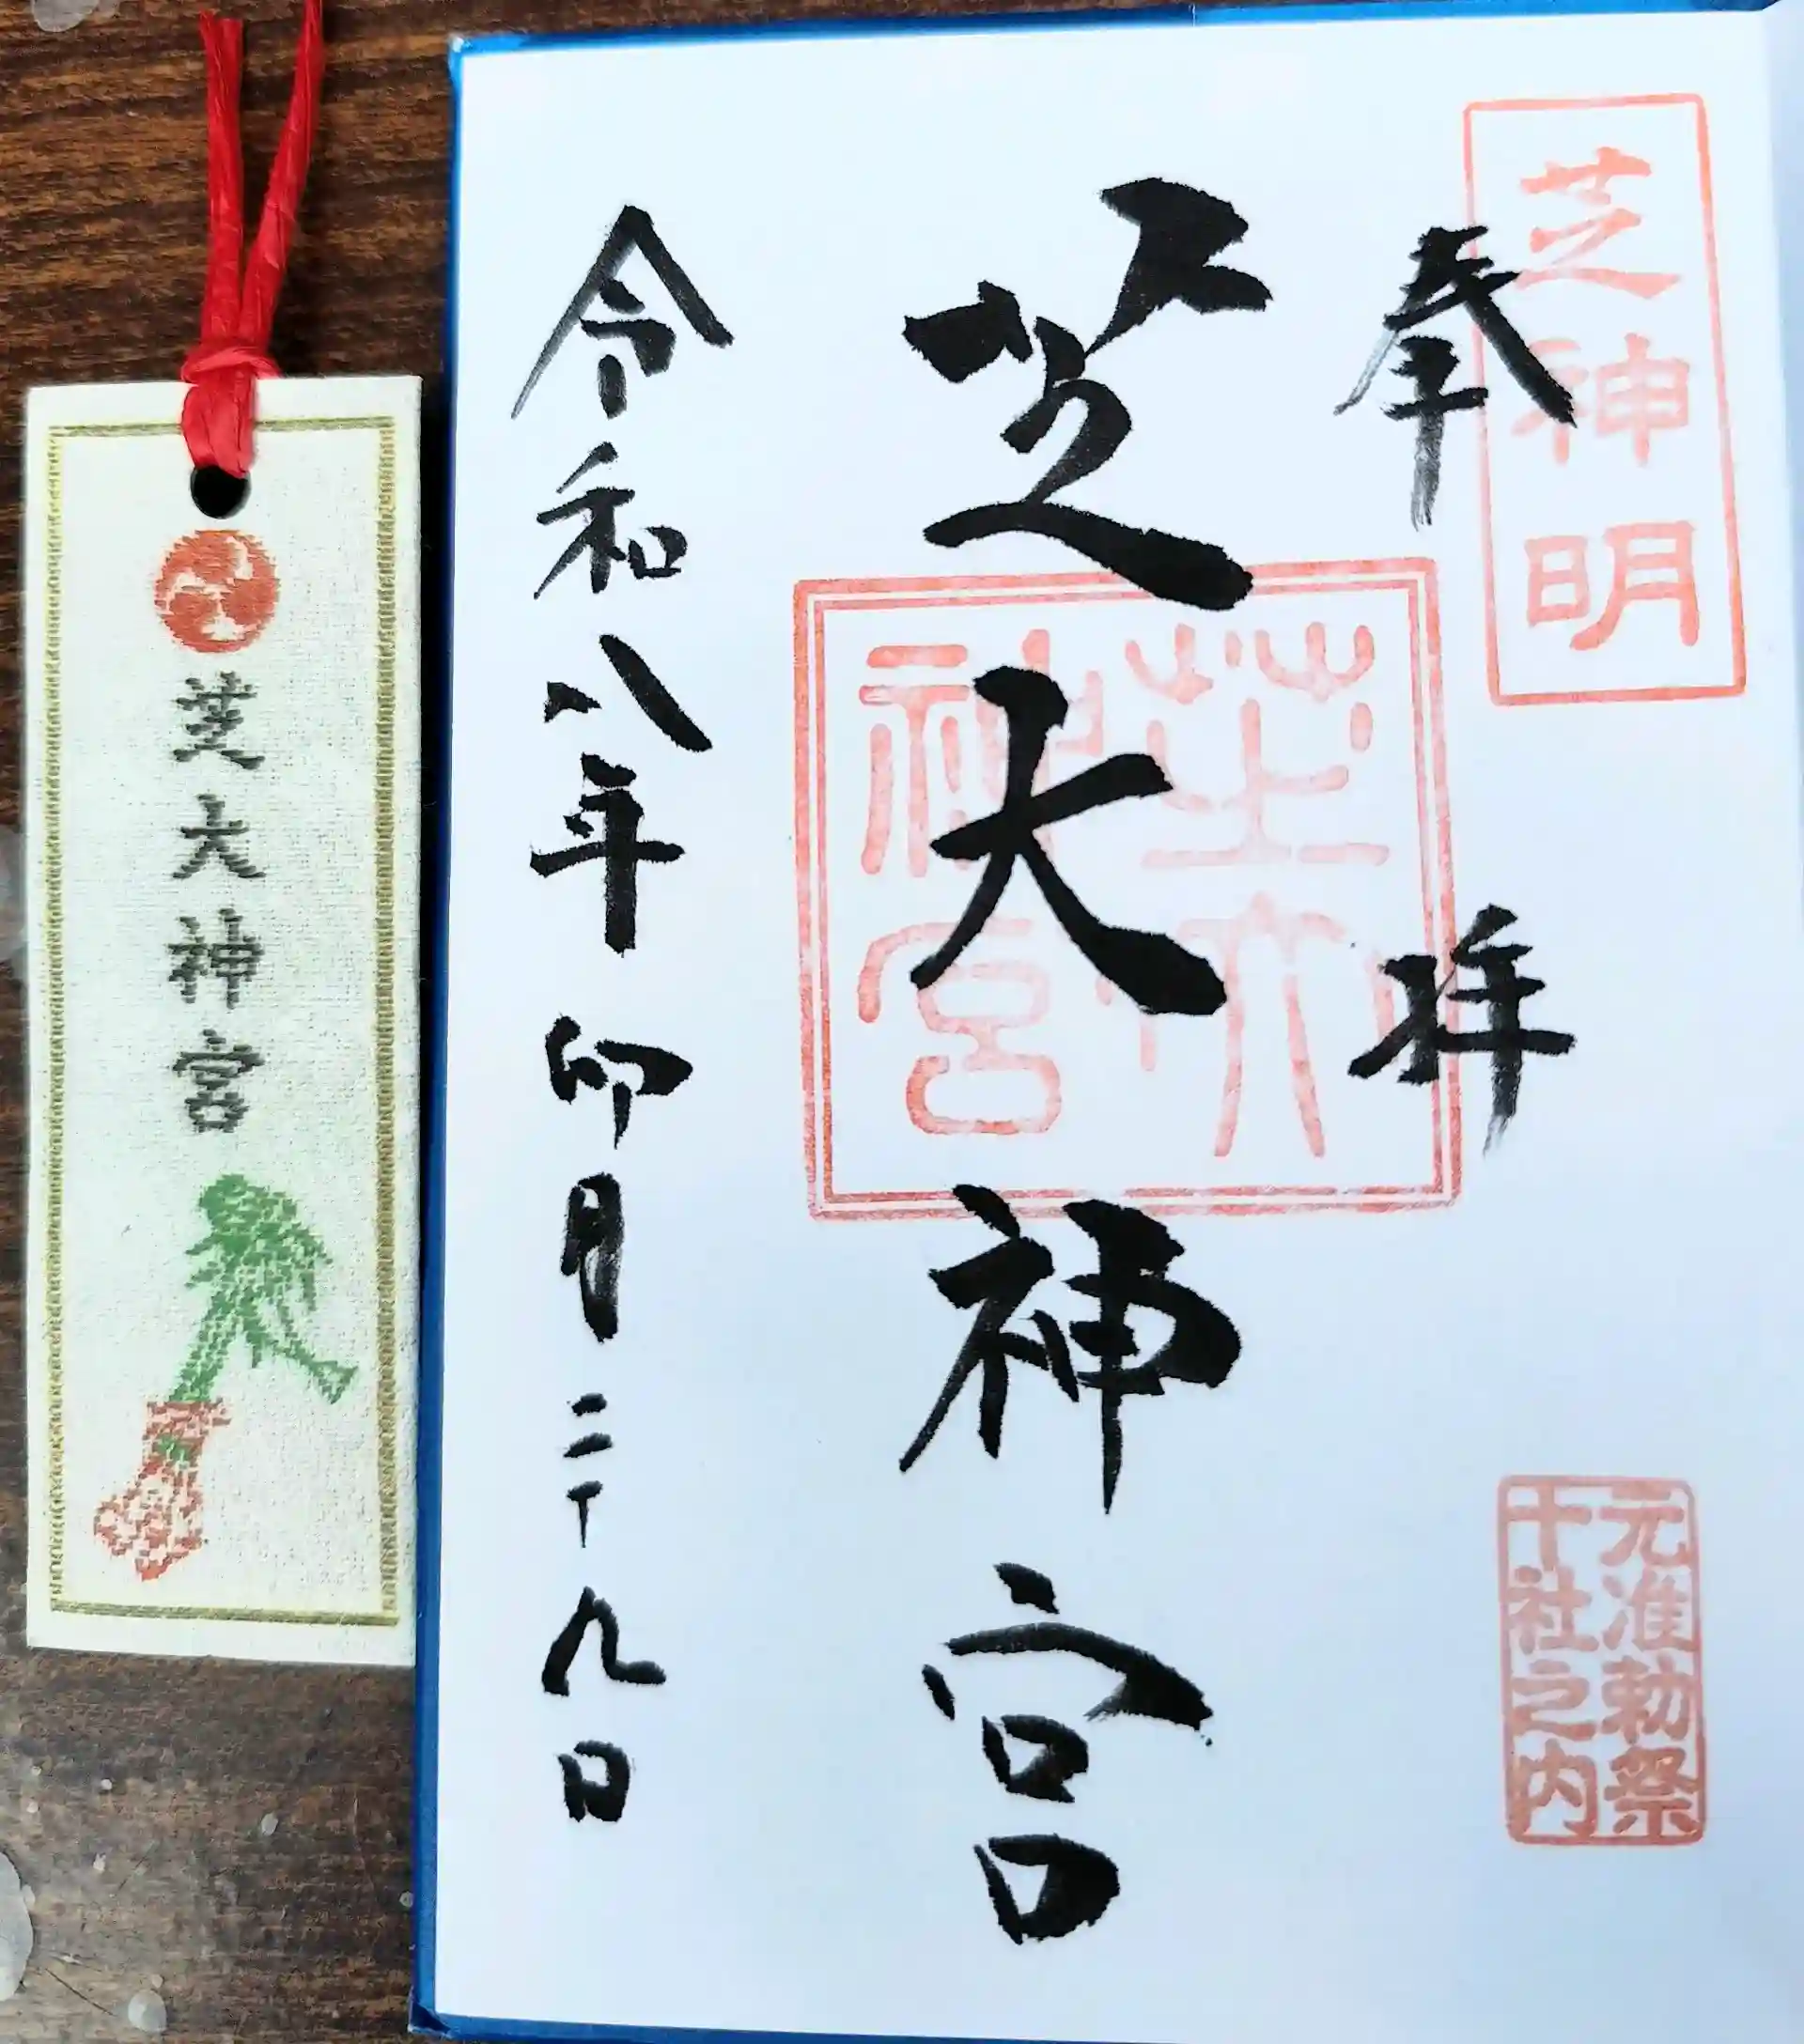 芝神明
奉拝
元准勅祭
十社之内
芝大神宮
芝大
神宮
令和八年卯月二十九日
芝大神宮